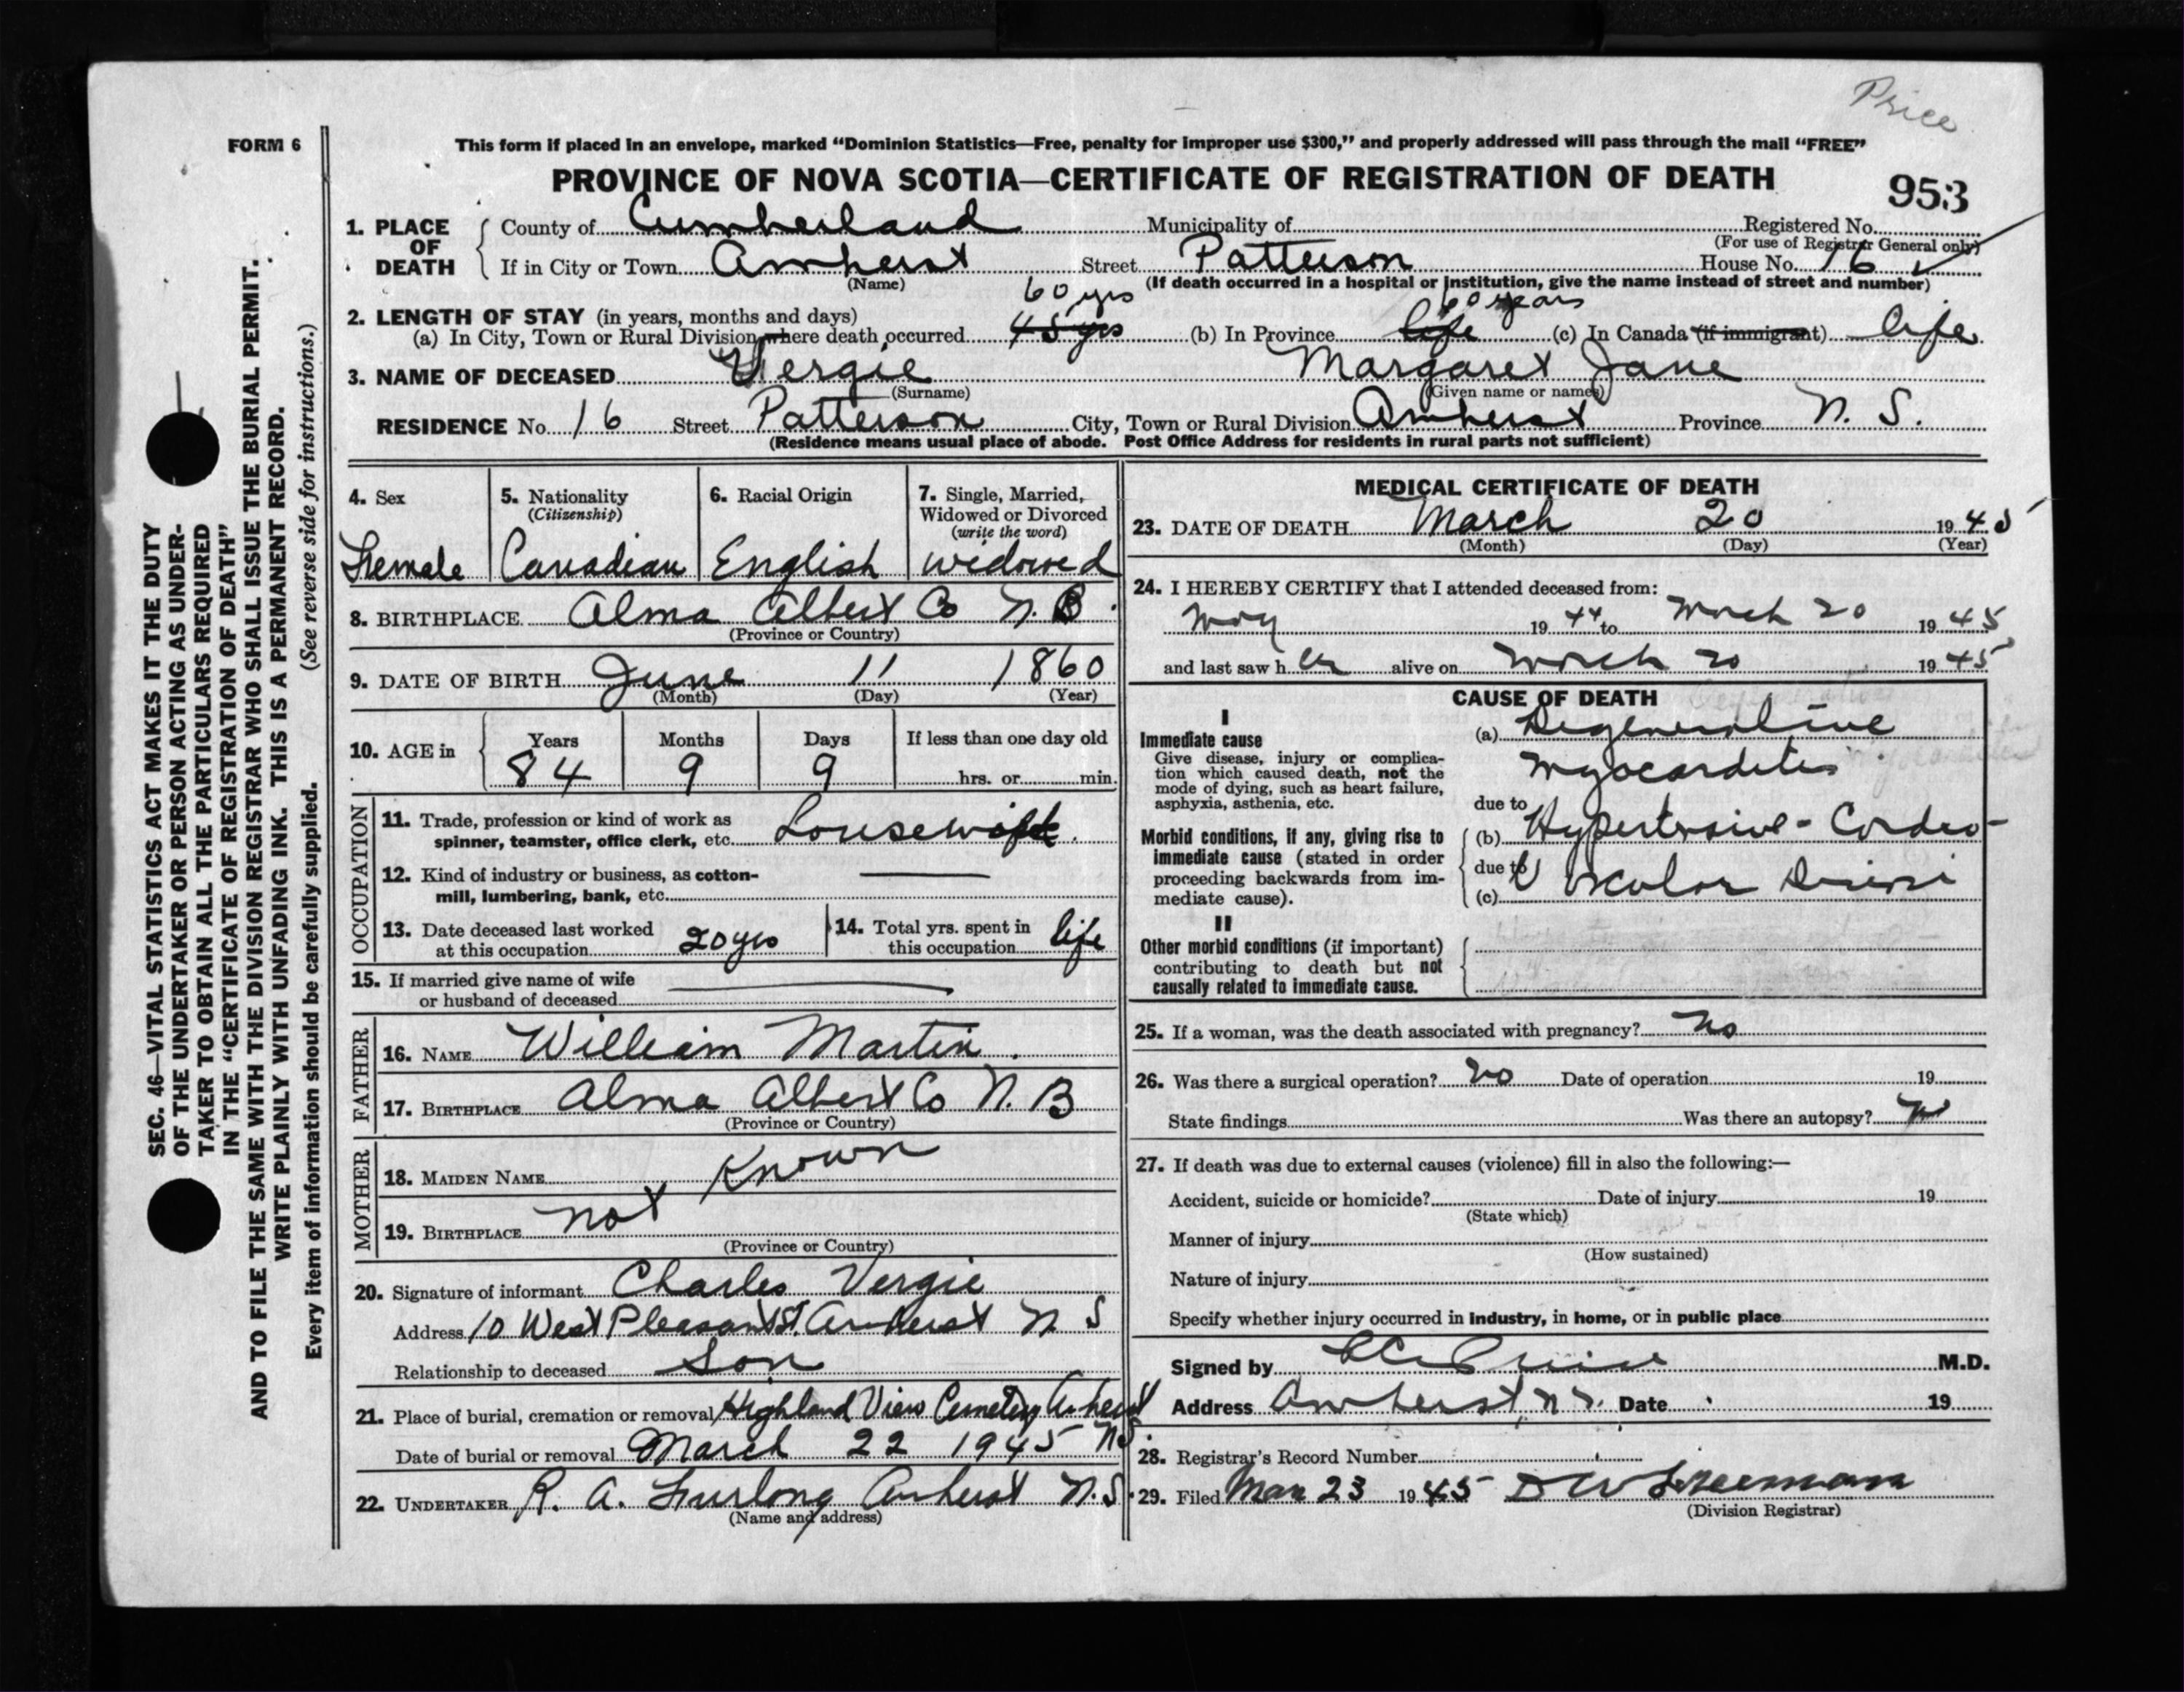 Price
FORM 6
This form if placed in an envelope, marked “Dominion Statistics—Free, penalty for improper use $300,” and properly addressed will pass through the mail “FREE”
PROVINCE OF NOVA SCOTIA—CERTIFICATE OF REGISTRATION OF DEATH
953
1. PLACE OF DEATH
County of Cumberland Municipality of Registered No.
(For use of Registrar General only)
If in City or Town Amherst Street Patterson House No. 16
(Name) (If death occurred in a hospital or institution, give the name instead of street and number)
60 yrs 60 years
2. LENGTH OF STAY (in years, months and days)
(a) In City, Town or Rural Division where death occurred 45 yrs (b) In Province life (c) In Canada (if immigrant) life
3. NAME OF DECEASED Vergie Margaret Jane
(Surname) (Given name or names)
RESIDENCE No. 16 Street Patterson City, Town or Rural Division Amherst Province N. S.
(Residence means usual place of abode. Post Office Address for residents in rural parts not sufficient)
4. Sex
Female
5. Nationality
(Citizenship)
Canadian
6. Racial Origin
English
7. Single, Married,
Widowed or Divorced
(write the word)
widowed
8. BIRTHPLACE Alma Albert Co N. B.
(Province or Country)
9. DATE OF BIRTH June 11 1860
(Month) (Day) (Year)
10. AGE in
Years Months Days If less than one day old
84 9 9 hrs. or min.
OCCUPATION
11. Trade, profession or kind of work as
spinner, teamster, office clerk, etc. Housewife
12. Kind of industry or business, as cotton-
mill, lumbering, bank, etc.
13. Date deceased last worked
at this occupation 20 yrs
14. Total yrs. spent in
this occupation life
15. If married give name of wife
or husband of deceased
FATHER
16. NAME William Martin
17. BIRTHPLACE Alma Albert Co N. B
(Province or Country)
MOTHER
18. MAIDEN NAME Known
19. BIRTHPLACE not
(Province or Country)
20. Signature of informant Charles Vergie
Address 10 West Pleasant St. Amherst N S
Relationship to deceased Son
21. Place of burial, cremation or removal Highland View Cemetery Amherst
Date of burial or removal March 22 1945 N.S.
22. UNDERTAKER R. A. Furlong Amherst N.S.
(Name and address)
MEDICAL CERTIFICATE OF DEATH
23. DATE OF DEATH March 20 1945
(Month) (Day) (Year)
24. I HEREBY CERTIFY that I attended deceased from:
May 1944 to March 20 1945
and last saw her alive on March 20 1945
CAUSE OF DEATH
I
Immediate cause
Give disease, injury or complica-
tion which caused death, not the
mode of dying, such as heart failure,
asphyxia, asthenia, etc.
(a) Degenerative
Myocarditis
due to
Morbid conditions, if any, giving rise to
immediate cause (stated in order
proceeding backwards from im-
mediate cause).
(b) Hypertensive - Cardio-
due to Vascular Disease
(c)
II
Other morbid conditions (if important)
contributing to death but not
causally related to immediate cause.
25. If a woman, was the death associated with pregnancy? No
26. Was there a surgical operation? No Date of operation 19
State findings Was there an autopsy? No
27. If death was due to external causes (violence) fill in also the following:—
Accident, suicide or homicide? Date of injury 19
(State which)
Manner of injury
(How sustained)
Nature of injury
Specify whether injury occurred in industry, in home, or in public place
Signed by Price M.D.
Address Amherst, N.S. Date 19
28. Registrar's Record Number
29. Filed Mar 23 1945 D W Freeman
(Division Registrar)
SEC. 46—VITAL STATISTICS ACT MAKES IT THE DUTY
OF THE UNDERTAKER OR PERSON ACTING AS UNDER-
TAKER TO OBTAIN ALL THE PARTICULARS REQUIRED
IN THE “CERTIFICATE OF REGISTRATION OF DEATH”
AND TO FILE THE SAME WITH THE DIVISION REGISTRAR WHO SHALL ISSUE THE BURIAL PERMIT.
WRITE PLAINLY WITH UNFADING INK. THIS IS A PERMANENT RECORD.
Every item of information should be carefully supplied. (See reverse side for instructions.)